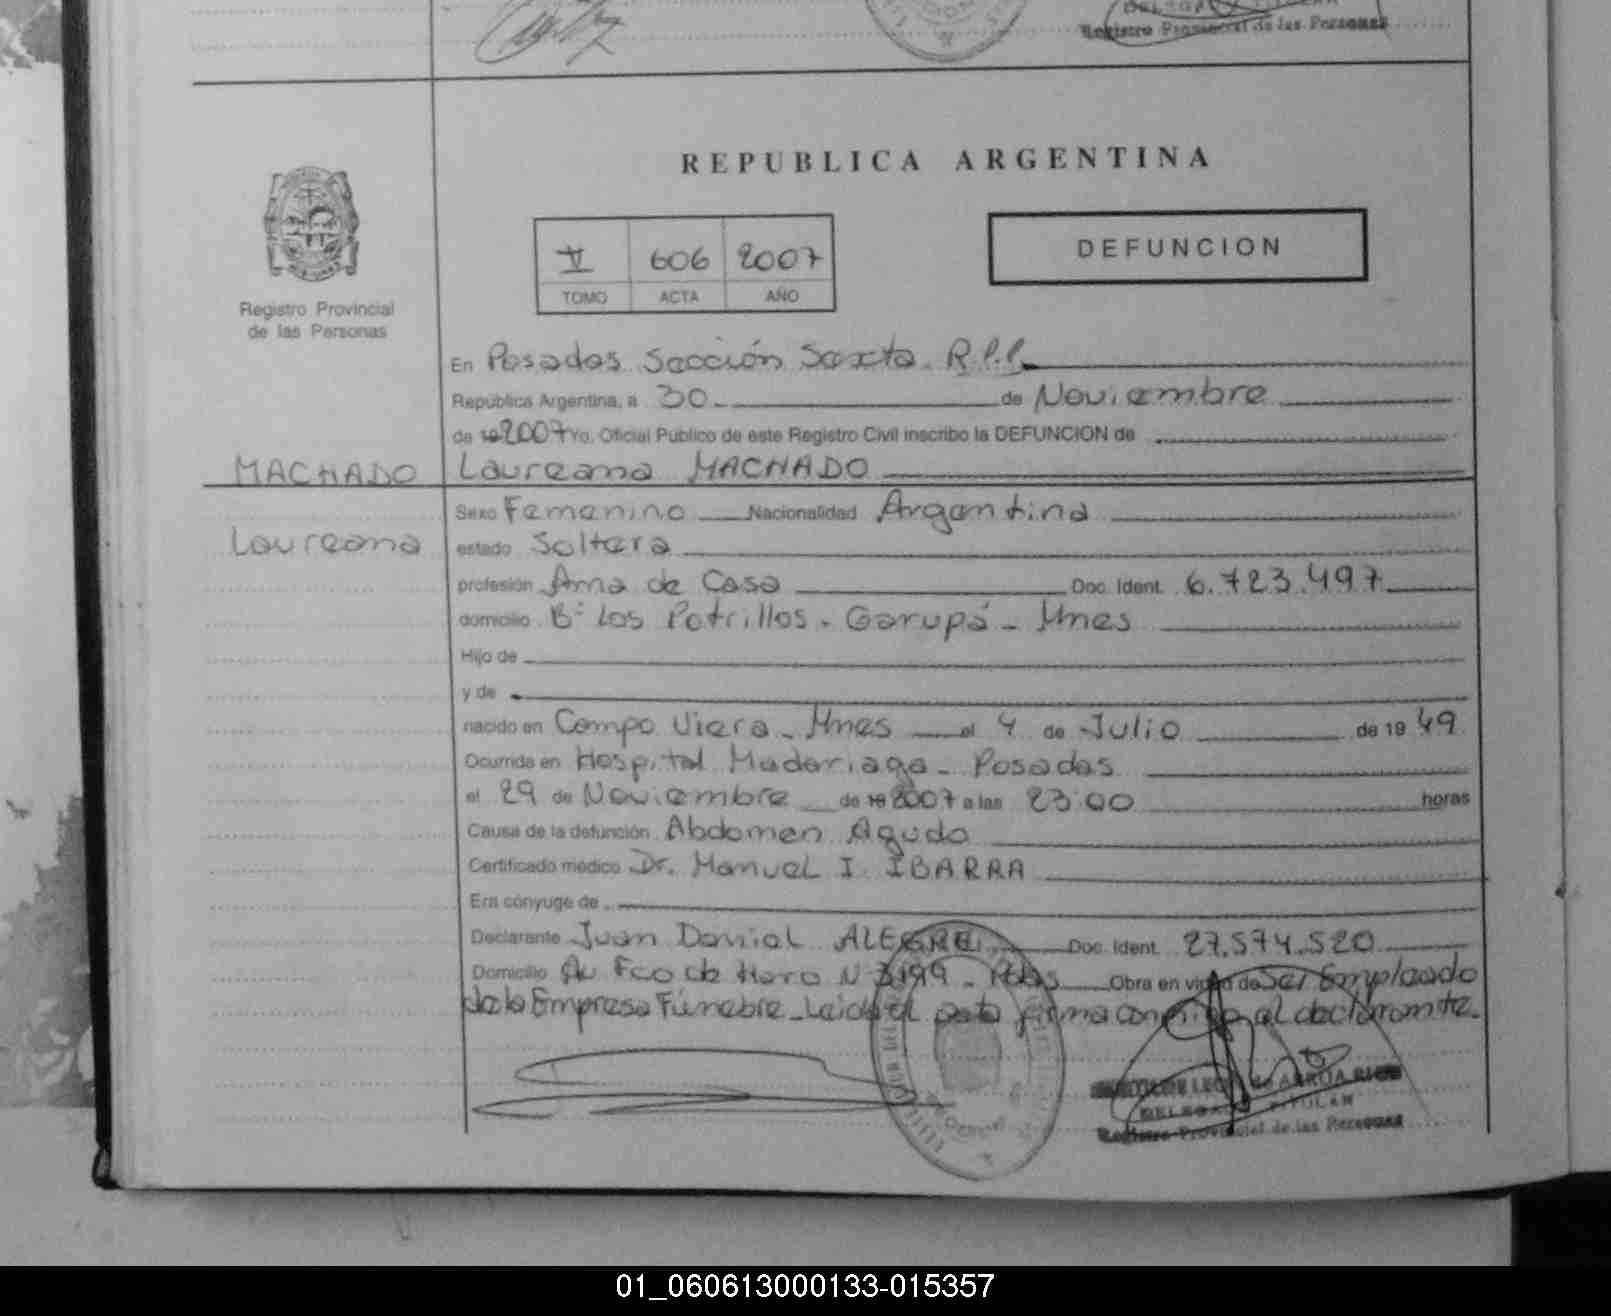 Registro Provincial de las Personas
REPUBLICA ARGENTINA
V 606 2007
TOMO ACTA AÑO
DEFUNCION
Registro Provincial
de las Personas
En Posadas Sección Sexta R.P.P.
República Argentina, a 30 de Noviembre
de 19 2007 Yo, Oficial Público de este Registro Civil inscribo la DEFUNCION de
MACHADO Laureana MACHADO
Sexo Femenino Nacionalidad Argentina
Laureana estado Soltera
profesión Ama de Casa Doc. Ident. 6.723.497
domicilio Bº Los Potrillos - Garupá - Mnes
Hijo de
y de
nacido en Campo Viera - Mnes el 4 de Julio de 19 49
Ocurrida en Hospital Madariaga - Posadas
el 29 de Noviembre de 19 2007 a las 23:00 horas
Causa de la defunción Abdomen Agudo
Certificado médico Dr. Manuel I. IBARRA
Era cónyuge de
Declarante Juan Daniel ALEGRE Doc. Ident. 27.574.520
Domicilio Av Fco de Haro N 3199 - Pdas Obra en virtud de Ser Empleado
de la Empresa Fúnebre - Leida el acta firma conmigo el declarante.
DELEGADO TITULAR
Registro Provincial de las Personas
01_060613000133-015357